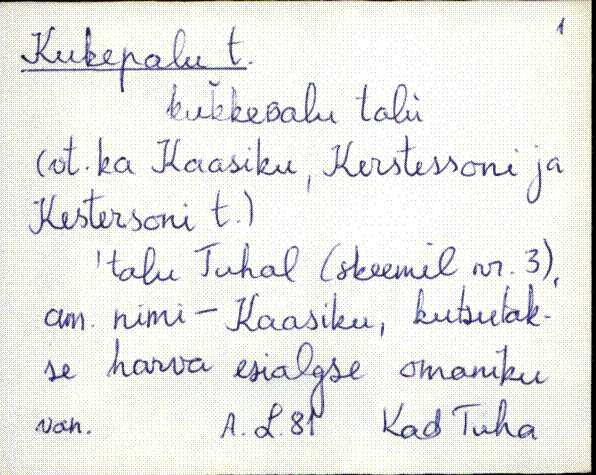 1
Kukepalu t.
kukkeʙalu talu
(vt. ka Kaasiku, Kerstessoni ja
Kestersoni t.)
'talu Tuhal (skeemil nr. 3),
am. nimi – Kaasiku, kutsutak-
se harva esialgse omaniku
van. A. L. 81 Kad Tuha